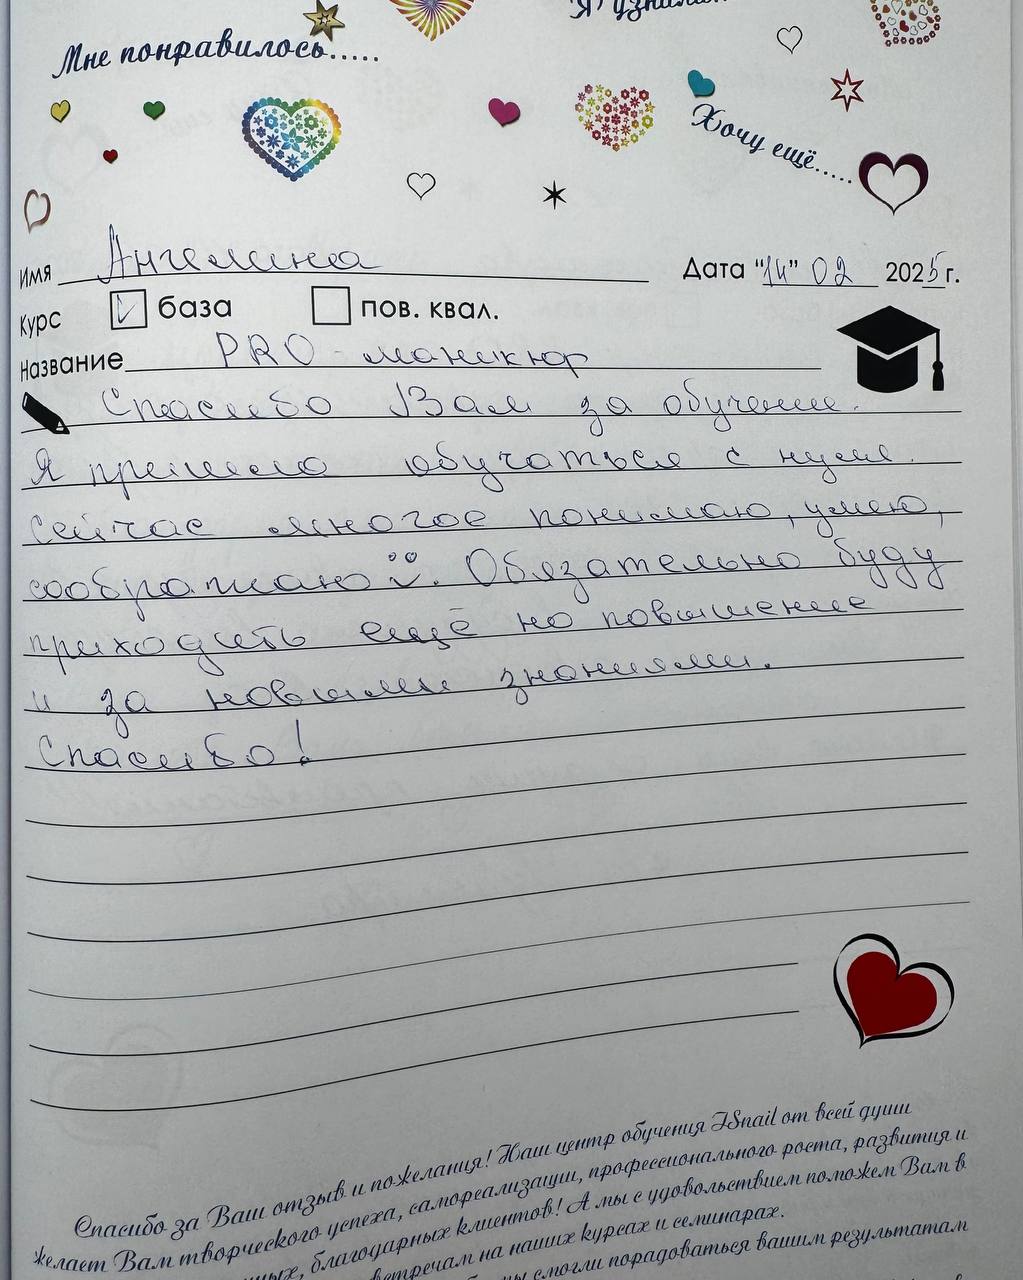 Я узнала
Мне понравилось.....
Хочу ещё.....
Имя Ангелина Дата "14" 02 2025 г.
Курс ✓ база пов. квал.
Название PRO-маникюр
Спасибо Вам за обучение.
Я пришла обучаться с нуля.
Сейчас многое понимаю, умею,
соображаю. Обязательно буду
приходить ещё на повышение
и за новыми знаниями.
Спасибо!
Спасибо за Ваш отзыв и пожелания! Наш центр обучения ISnail от всей души
желает Вам творческого успеха, самореализации, профессионального роста, развития и
благодарных клиентов! А мы с удовольствием поможем Вам в
на наших курсах и семинарах.
смогли порадоваться вашим результатам